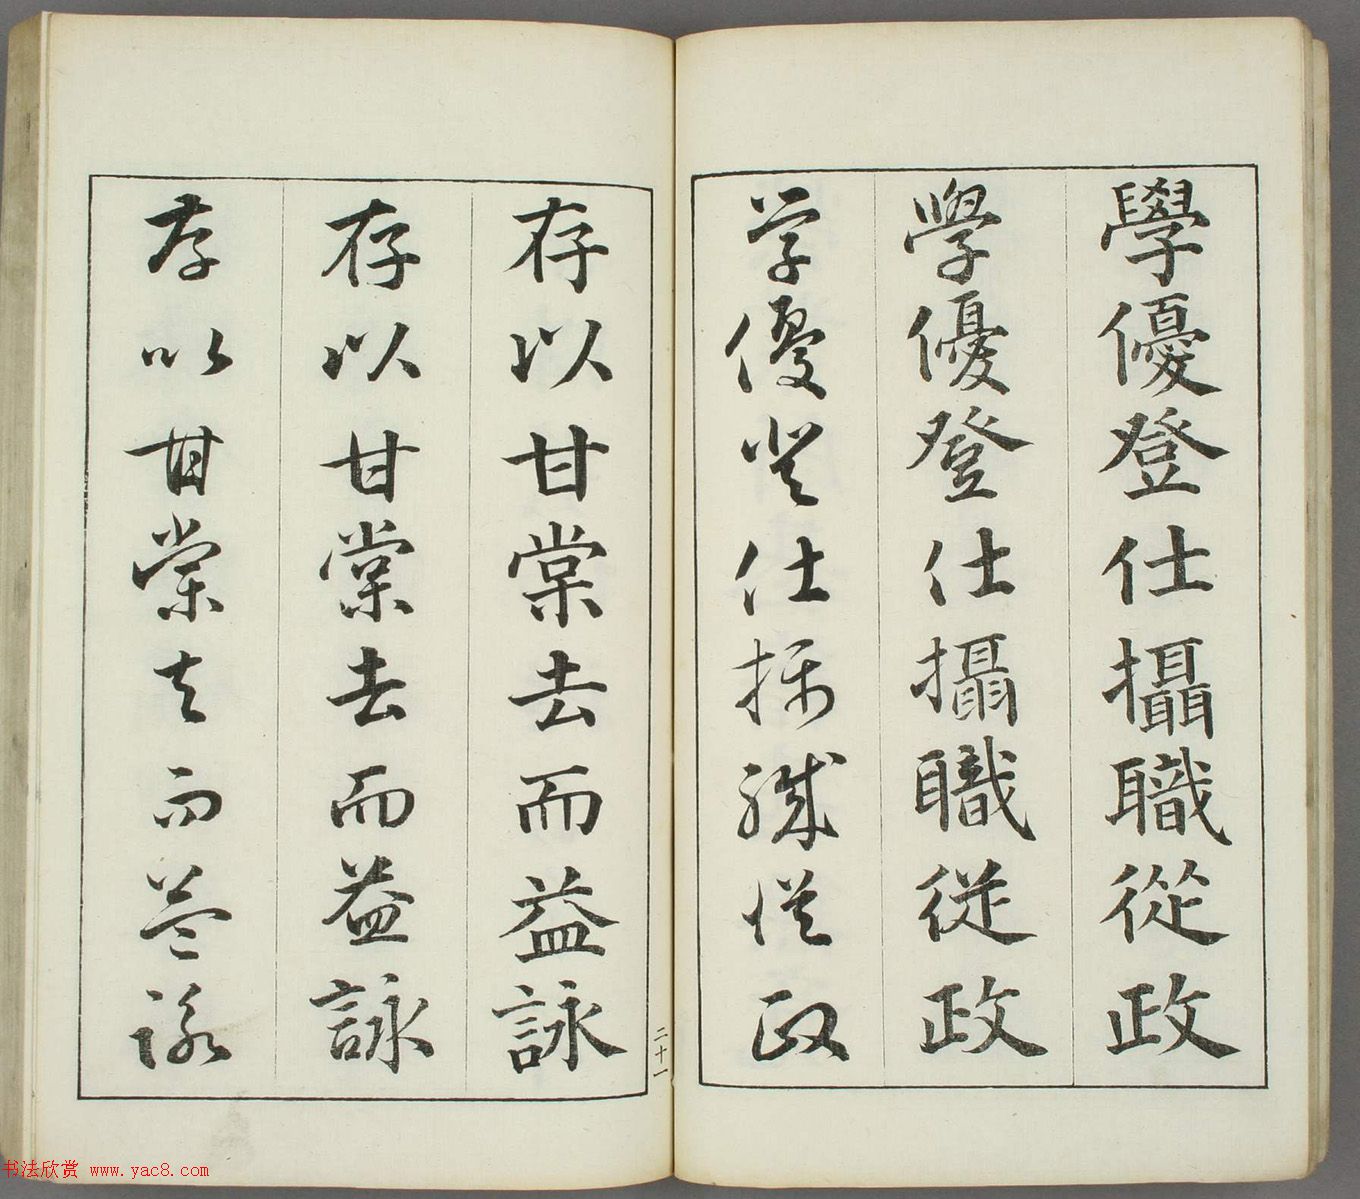 學優登仕攝職從政
學優登仕攝職従政
学優登仕攝職從政
存以甘棠去而益詠
存以甘棠去而益詠
存以甘棠去而益詠
二十一
书法欣赏 www.yac8.com